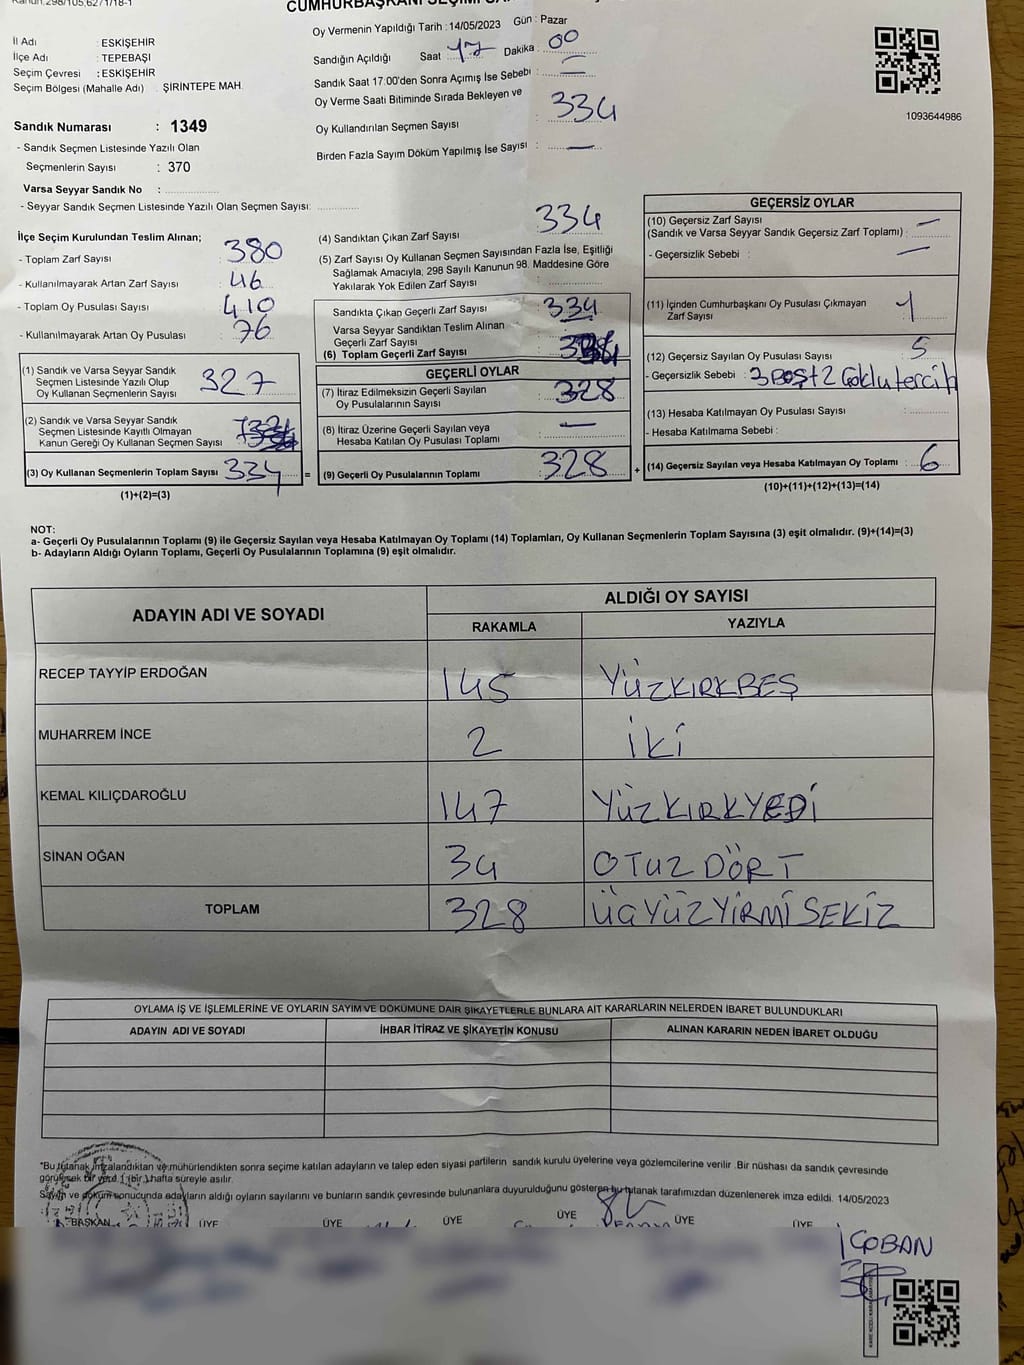 Kanun:298/105,
İl Adı : ESKİŞEHİR
İlçe Adı : TEPEBAŞI
Seçim Çevresi : ESKİŞEHİR
Seçim Bölgesi (Mahalle Adı) ŞİRİNTEPE MAH.
Sandık Numarası : 1349
- Sandık Seçmen Listesinde Yazılı Olan
Seçmenlerin Sayısı : 370
Varsa Seyyar Sandık No :
- Seyyar Sandık Seçmen Listesinde Yazılı Olan Seçmen Sayısı:
CUMHURBAŞKANI SEÇİMİ
Oy Vermenin Yapıldığı Tarih : 14/05/2023 Gün : Pazar
Sandığın Açıldığı Saat 17 Dakika : 00
Sandık Saat 17:00'den Sonra Açımış İse Sebebi : —
Oy Verme Saati Bitiminde Sırada Bekleyen ve
Oy Kullandırılan Seçmen Sayısı : 334
Birden Fazla Sayım Döküm Yapılmış İse Sayısı : —
1093644986
İlçe Seçim Kurulundan Teslim Alınan;
- Toplam Zarf Sayısı : 380
- Kullanılmayarak Artan Zarf Sayısı : 46
- Toplam Oy Pusulası Sayısı : 410
- Kullanılmayarak Artan Oy Pusulası : 76
(1) Sandık ve Varsa Seyyar Sandık
Seçmen Listesinde Yazılı Olup
Oy Kullanan Seçmenlerin Sayısı : 327
(2) Sandık ve Varsa Seyyar Sandık
Seçmen Listesinde Kayıtlı Olmayan
Kanun Gereği Oy Kullanan Seçmen Sayısı :
(3) Oy Kullanan Seçmenlerin Toplam Sayısı : 334
(1)+(2)=(3)
(4) Sandıktan Çıkan Zarf Sayısı : 334
(5) Zarf Sayısı Oy Kullanan Seçmen Sayısından Fazla İse, Eşitliği
Sağlamak Amacıyla, 298 Sayılı Kanunun 98. Maddesine Göre
Yakılarak Yok Edilen Zarf Sayısı :
Sandıkta Çıkan Geçerli Zarf Sayısı : 334
Varsa Seyyar Sandıktan Teslim Alınan
Geçerli Zarf Sayısı :
(6) Toplam Geçerli Zarf Sayısı :
GEÇERLİ OYLAR
(7) İtiraz Edilmeksizin Geçerli Sayılan
Oy Pusulalarının Sayısı : 328
(8) İtiraz Üzerine Geçerli Sayılan veya
Hesaba Katılan Oy Pusulası Toplamı : —
= (9) Geçerli Oy Pusulalarının Toplamı : 328
GEÇERSİZ OYLAR
(10) Geçersiz Zarf Sayısı
(Sandık ve Varsa Seyyar Sandık Geçersiz Zarf Toplamı) : —
- Geçersizlik Sebebi : —
(11) İçinden Cumhurbaşkanı Oy Pusulası Çıkmayan
Zarf Sayısı : 1
(12) Geçersiz Sayılan Oy Pusulası Sayısı : 5
- Geçersizlik Sebebi : 3 BOŞ+2 Çoklu tercih
(13) Hesaba Katılmayan Oy Pusulası Sayısı :
- Hesaba Katılmama Sebebi :
+ (14) Geçersiz Sayılan veya Hesaba Katılmayan Oy Toplamı : 6
(10)+(11)+(12)+(13)=(14)
NOT:
a- Geçerli Oy Pusulalarının Toplamı (9) ile Geçersiz Sayılan veya Hesaba Katılmayan Oy Toplamı (14) Toplamları, Oy Kullanan Seçmenlerin Toplam Sayısına (3) eşit olmalıdır. (9)+(14)=(3)
b- Adayların Aldığı Oyların Toplamı, Geçerli Oy Pusulalarının Toplamına (9) eşit olmalıdır.
ADAYIN ADI VE SOYADI
ALDIĞI OY SAYISI
RAKAMLA YAZIYLA
RECEP TAYYİP ERDOĞAN 145 YÜZKIRKBEŞ
MUHARREM İNCE 2 İKİ
KEMAL KILIÇDAROĞLU 147 YÜZKIRKYEDİ
SİNAN OĞAN 34 OTUZ DÖRT
TOPLAM 328 ÜÇYÜZYİRMİSEKİZ
OYLAMA İŞ VE İŞLEMLERİNE VE OYLARIN SAYIM VE DÖKÜMÜNE DAİR ŞİKAYETLERLE BUNLARA AİT KARARLARIN NELERDEN İBARET BULUNDUKLARI
ADAYIN ADI VE SOYADI İHBAR İTİRAZ VE ŞİKAYETİN KONUSU ALINAN KARARIN NEDEN İBARET OLDUĞU
"Bu tutanak imzalandıktan ve mühürlendikten sonra seçime katılan adayların ve talep eden siyasi partilerin sandık kurulu üyelerine veya gözlemcilerine verilir .Bir nüshası da sandık çevresinde
görülecek bir yere 1 (bir) hafta süreyle asılır.
Sayım ve döküm sonucunda adayların aldığı oyların sayılarını ve bunların sandık çevresinde bulunanlara duyurulduğunu gösteren bu tutanak tarafımızdan düzenlenerek imza edildi. 14/05/2023
BAŞKAN ÜYE ÜYE ÜYE ÜYE ÜYE ÜYE
ÇOBAN